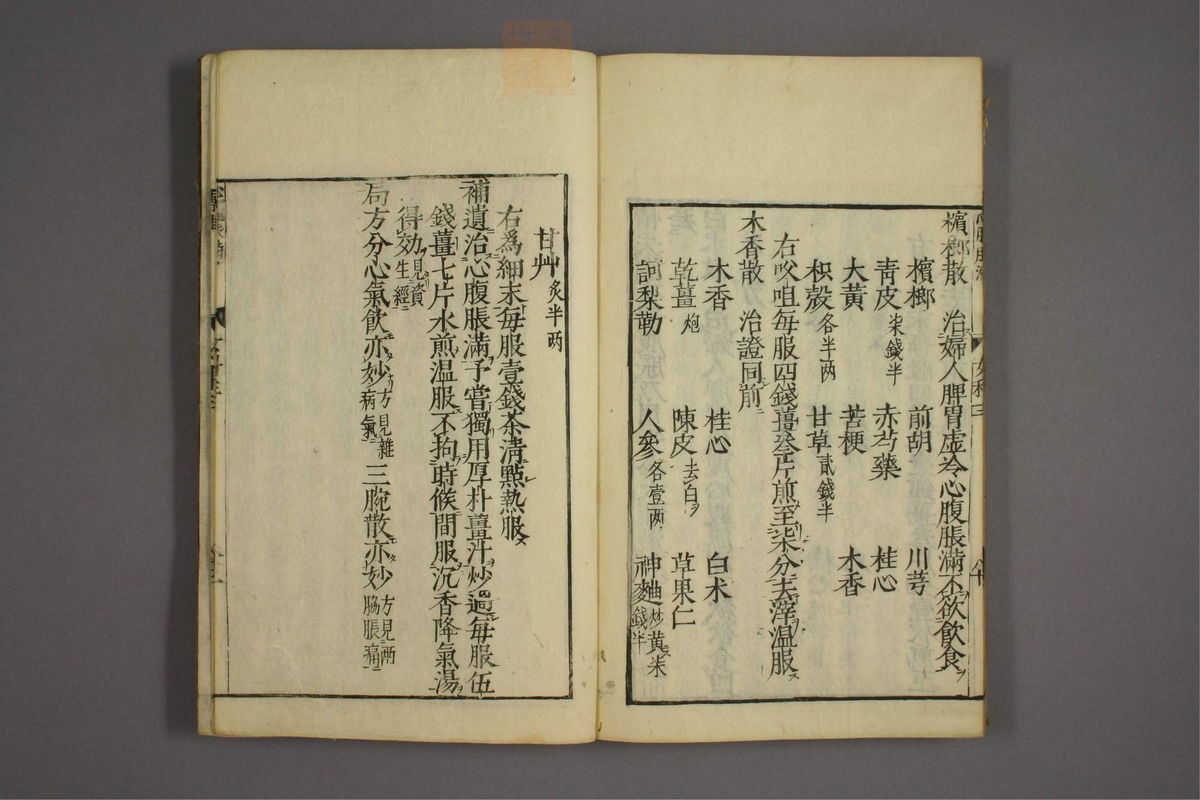 檳榔散 治婦人脾胃虛冷心腹脹滿不欲飲食
檳榔 前胡 川芎
青皮柒錢半 赤芍藥 桂心
大黃 苦梗 木香
枳殼各半两 甘草貳錢半
右㕮咀每服四錢薑叄片煎至柒分去滓溫服
木香散 治證同前
木香 桂心 白朮
乾薑炮 陳皮去白 草果仁
訶梨勒 人參各壹两 神麯炒黃柒錢半
甘艸炙半两
右爲細末每服壹錢茶清點熱服
補遺治心腹脹滿子嘗獨用厚朴薑汁炒過每服伍
錢薑七片水煎溫服不拘時候間服沉香降氣湯
得効見資生經
局方分心氣飲亦妙方見雜病氣 三脘散亦妙方見两脇脹痛